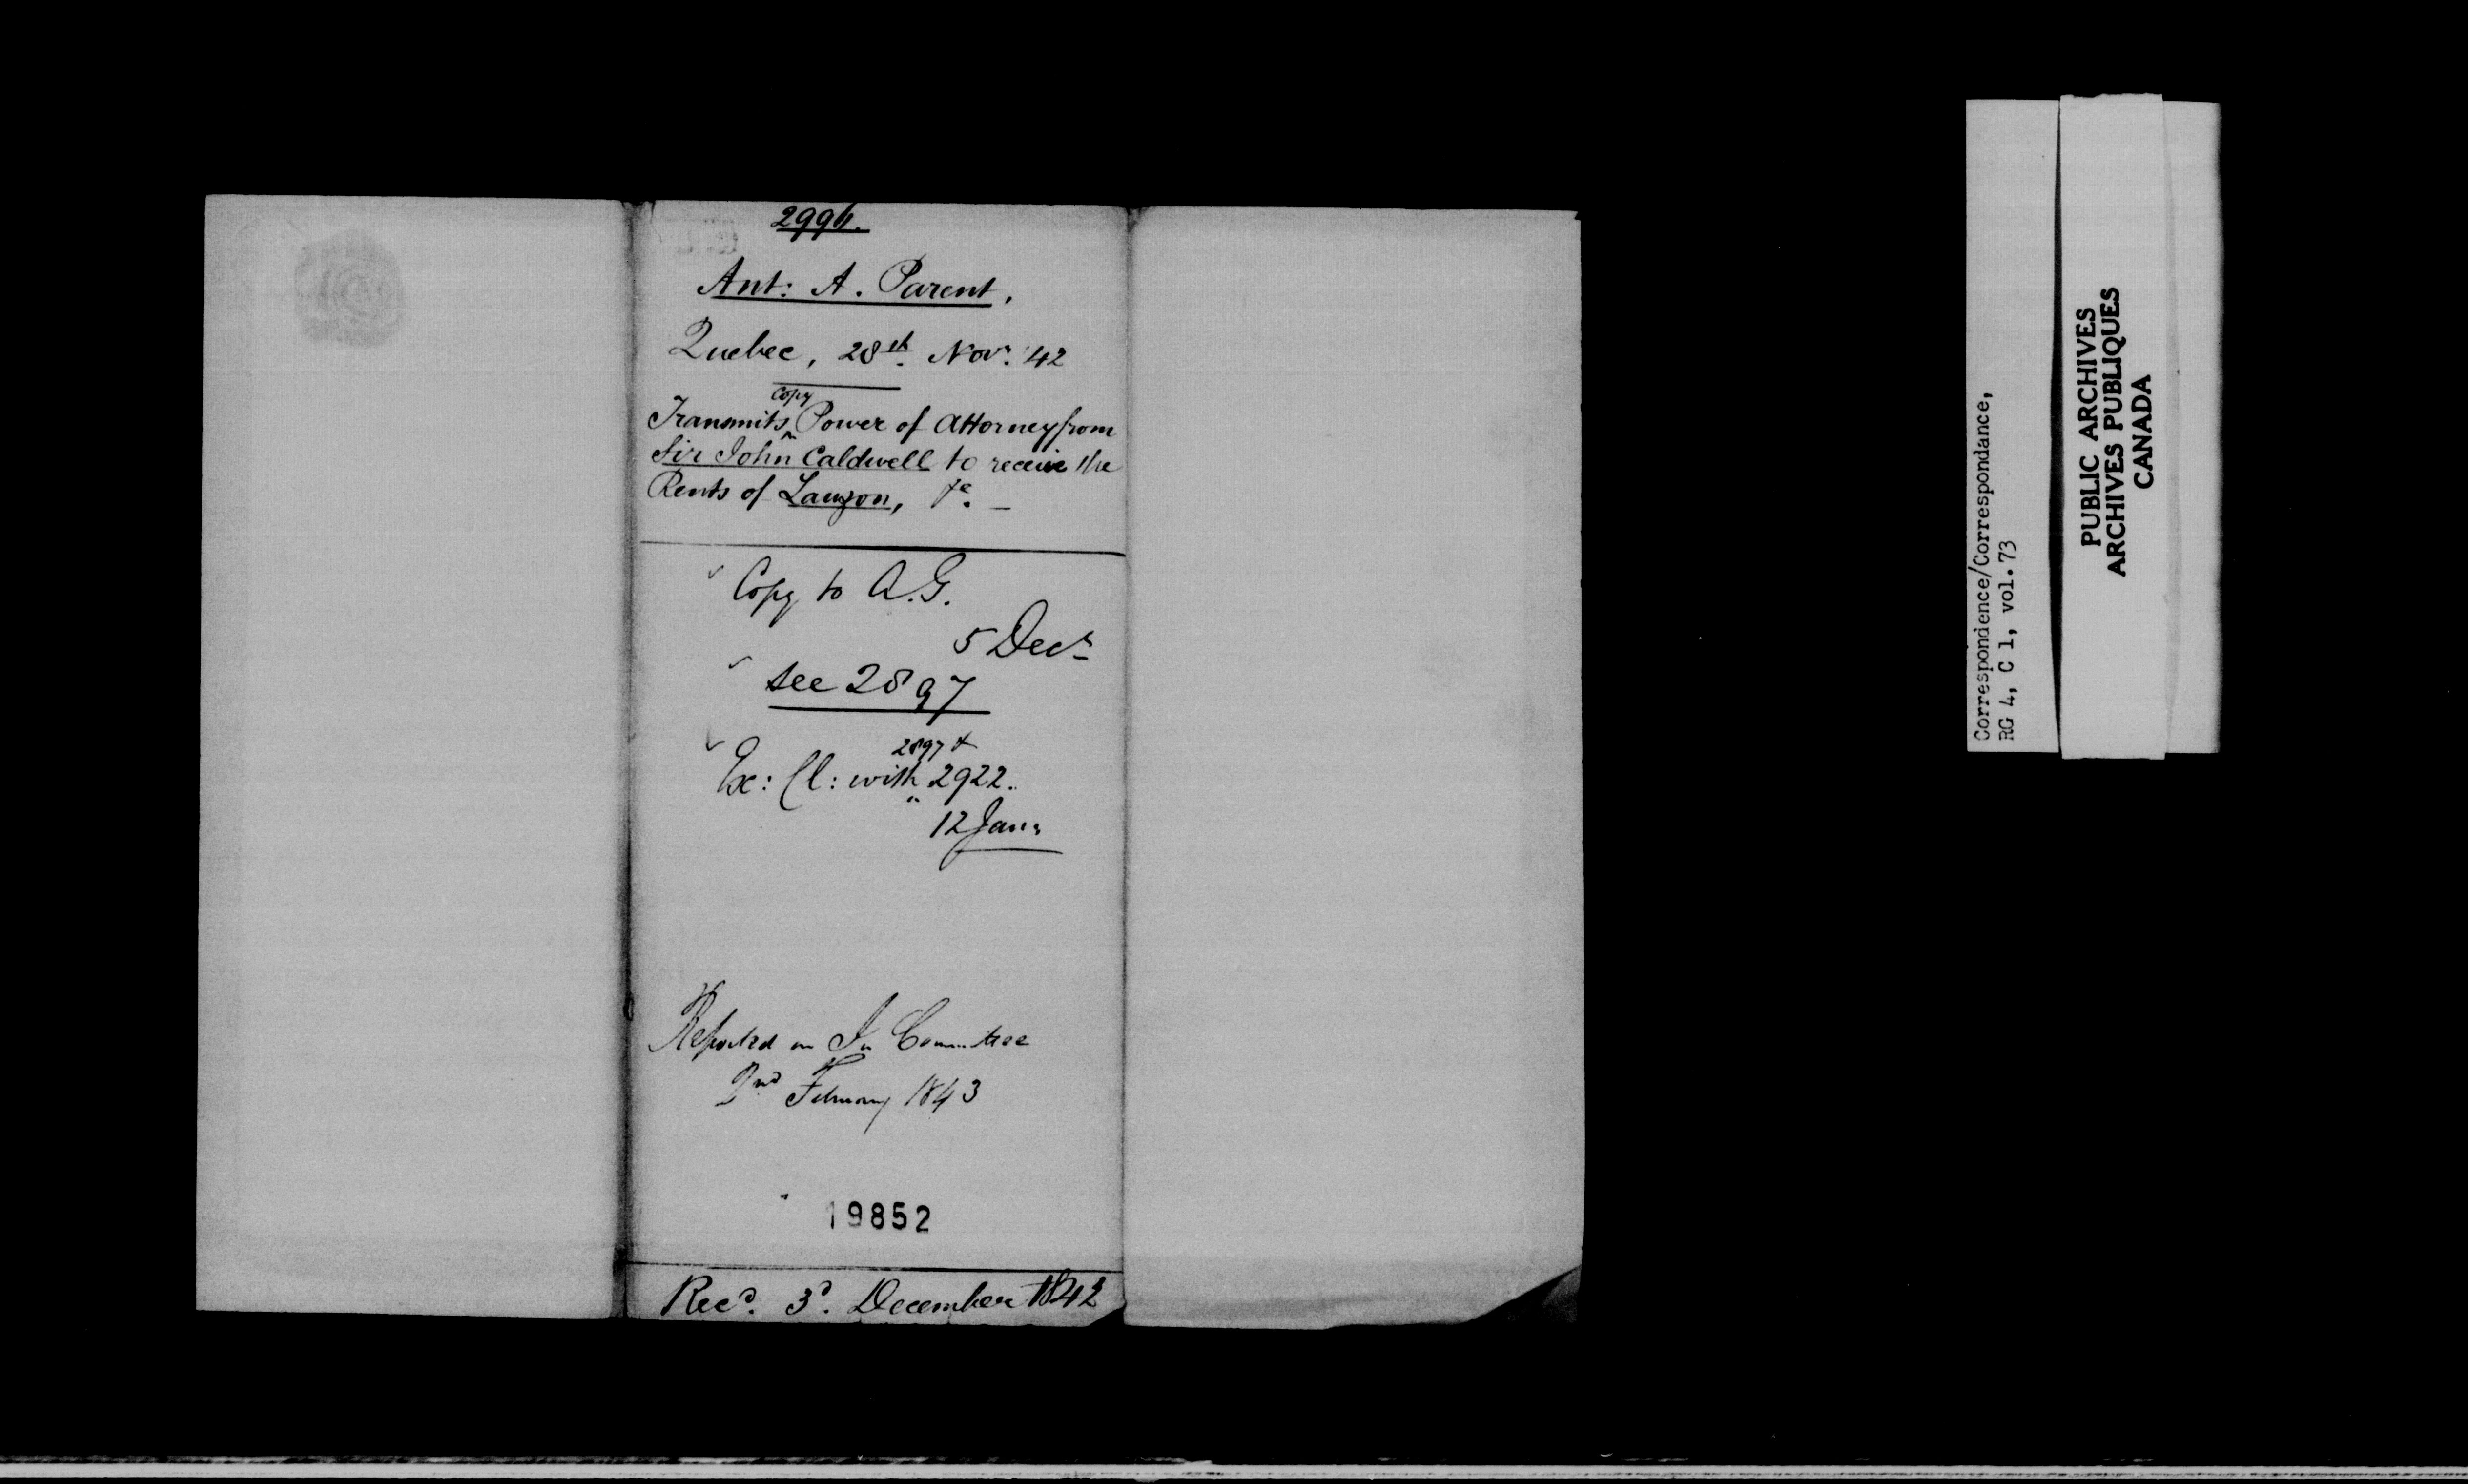 2994.
Ant: A. Parent,
Quebec, 28th Novr. '42
copy
Transmits ^ Power of Attorney from
Sir John Caldwell to receive the
Rents of Lauzon, &c. —
Copy to A.G.
5 Decr
see 2897
2897 &
Ex: Cl: with 2922.
12 Jany
Reported on In Committee
2nd February 1843
19852
Recd. 3d. December 1842
Correspondence/Correspondance,
RG 4, C 1, vol. 73
PUBLIC ARCHIVES
ARCHIVES PUBLIQUES
CANADA